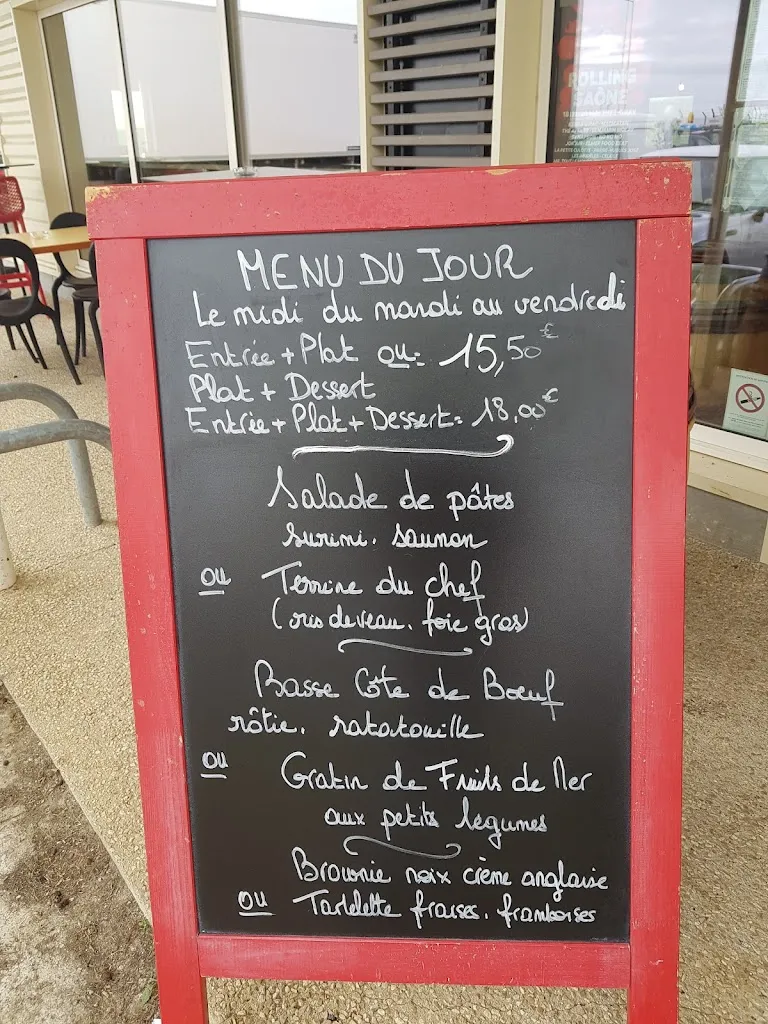 ROLLING
SAÔNE
MENU DU JOUR
Le midi du mardi au vendredi
Entrée + Plat ou: 15,50€
Plat + Dessert
Entrée + Plat + Dessert: 18,00€
Salade de pâtes
surimi. saumon
ou Terrine du chef
(ris de veau. foie gras)
Basse Côte de Bœuf
rôtie. ratatouille
ou Gratin de Fruits de Mer
aux petits légumes
Brownie noix crème anglaise
ou Tartelette fraises. framboises